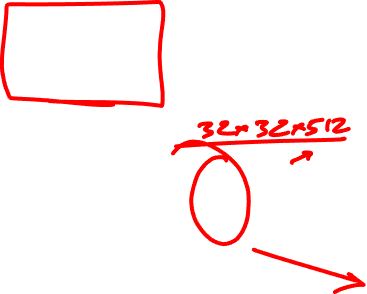 32×32×512